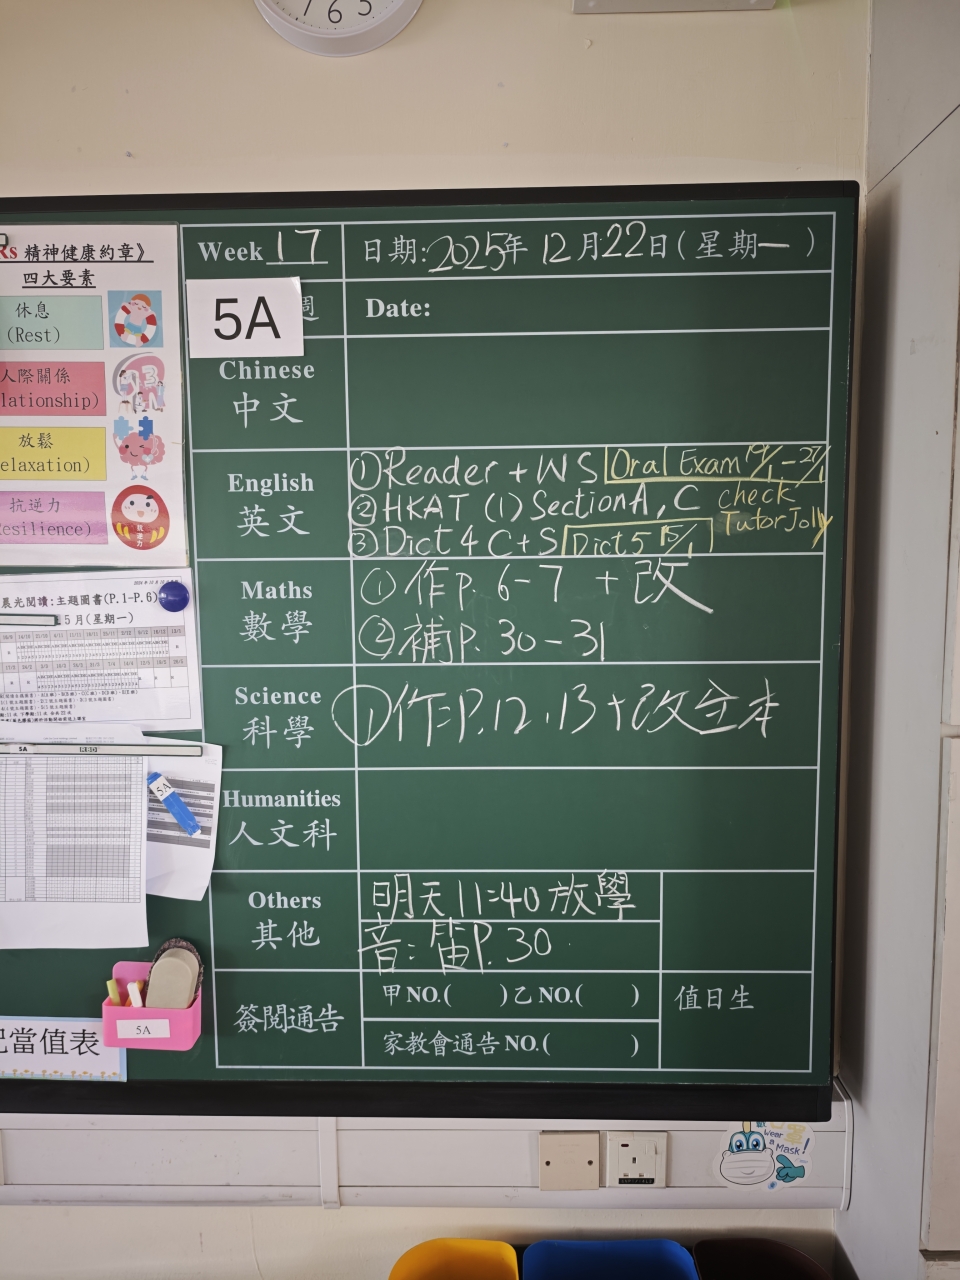 7 6 5
Rs 精神健康約章》
四大要素
休息
(Rest)
人際關係
lationship)
放鬆
elaxation)
抗逆力
esilience)
抗逆力
晨光閱讀:主題圖書(P.1-P.6)
5月(星期一)
5A
RBD
5A
5A
記當值表
Week 17
日期:2025年 12月22日(星期一)
5A
週
Date:
Chinese
中文
English
英文
①Reader + WS Oral Exam 19/1-27/1
②HKAT (1) Section A, C check
TutorJolly
③Dict 4 C+S Dict 5 15/1
Maths
數學
①作P. 6-7 + 改
②補P. 30-31
Science
科學
①作:P.12,13+改全本
Humanities
人文科
Others
其他
明天11:40放學
音:笛P.30
簽閱通告
甲NO.( )乙NO.( )
家教會通告NO.( )
值日生
Wear
a
Mask!